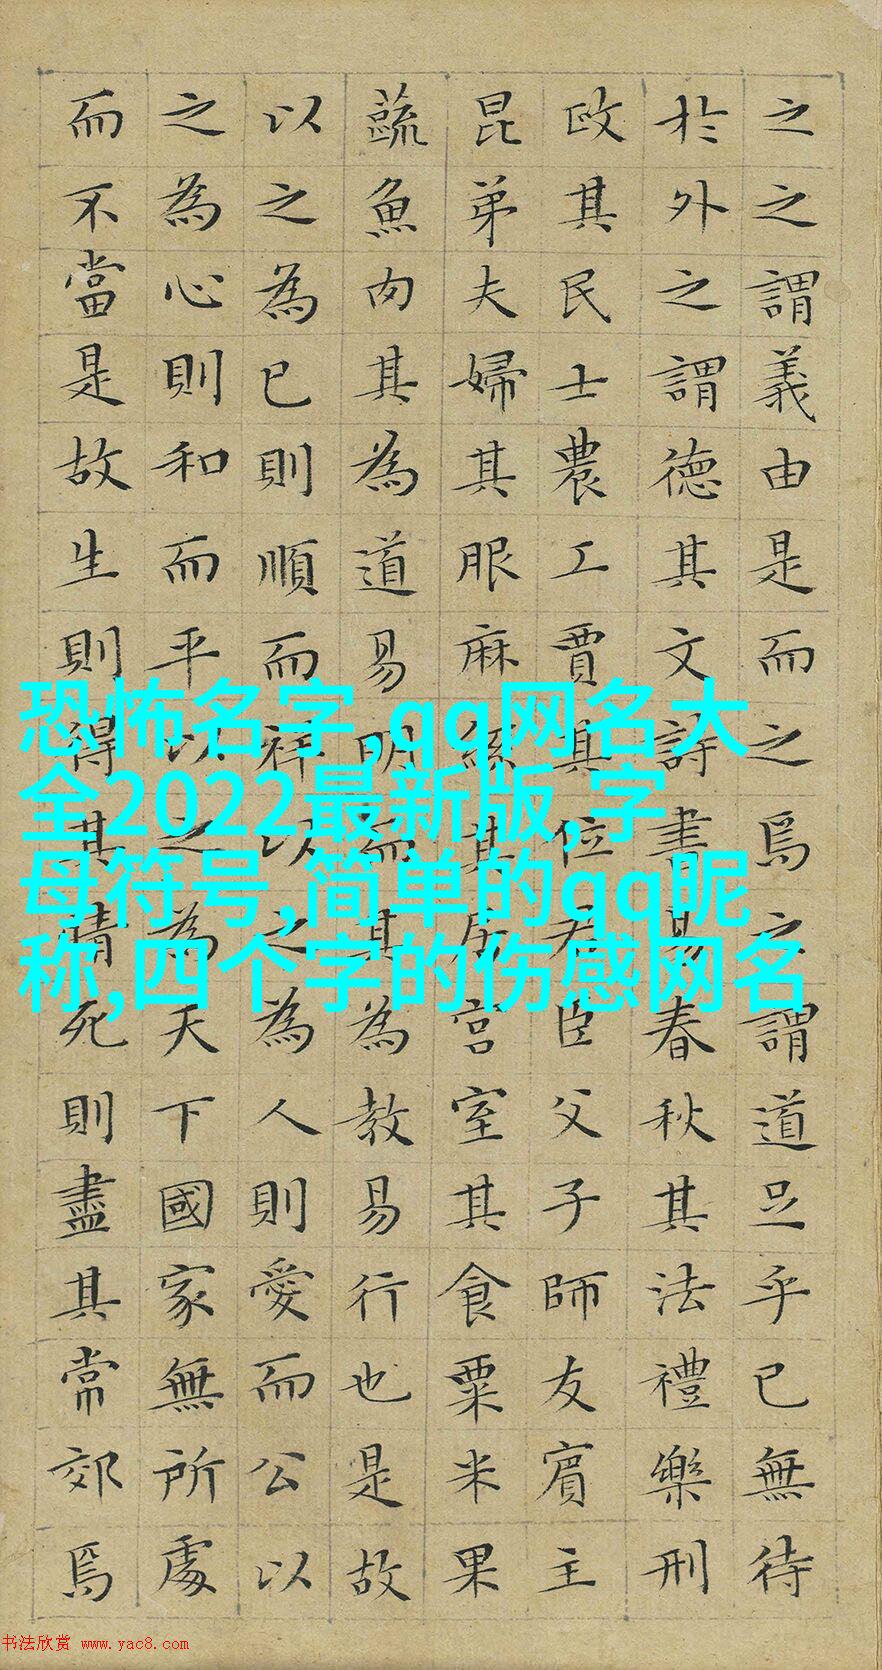 之之謂義由是而之焉之謂道足乎已無待
於外之謂德其文詩書易春秋其法禮樂刑
政其民士農工賈其位君臣父子師友賓主
昆弟夫婦其服麻絲其居宮室其食粟米果
蔬魚肉其為道易明而其為教易行也是故
以之為已則順而祥以之為人則愛而公以
之為心則和而平以之為天下國家無所處
而不當是故生則得其情死則盡其常郊焉
恐怖名字,qq网名大
全2022最新版,字
母符号,简单的qq昵
称,四个字的伤感网名
书法欣赏 www.yac8.com